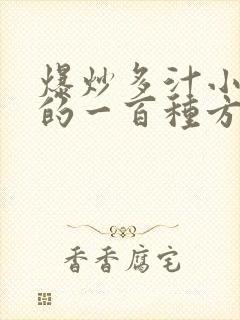 爆炒多汁小
的一百種方
香香腐宅